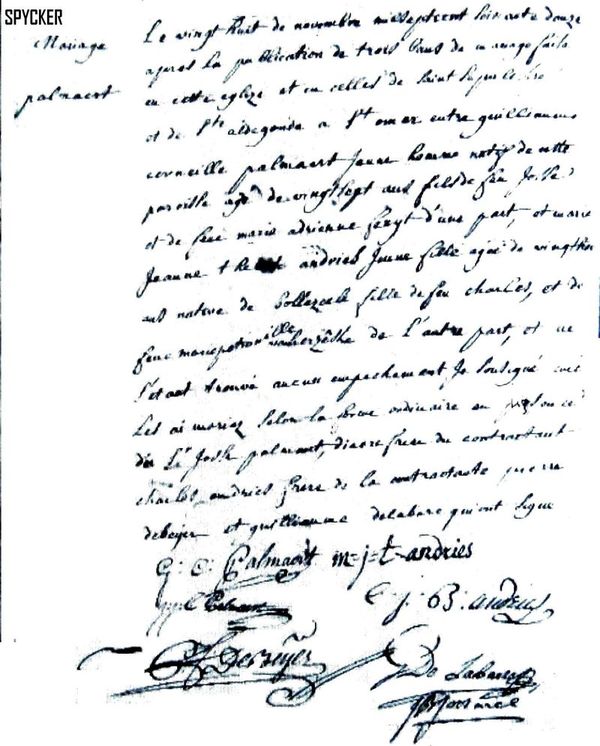 SPYCKER
Mariage
palmaert
Le vingt huit de novembre mil sept cent soixante douze
apres la publication de trois bans de mariage faite
en cette eglize et en celles de saint sepulcre
et de Ste aldegonde a St omer entre guilliaume
corneille palmaert jeune homme natif de cette
paroisse agé de vingt sept ans fils de feu Josse
et de feue marie adrienne d'une part, et marie
Jeanne andries Jeune fille agée de vingt
ans native de bollezeele fille de feu charles, et de
feue marie petronille de L'autre part, et ne
s'etant trouvé aucun empechement, Je soussigné cure
Les ai mariez selon la forme ordinaire en presence
du Sr Josse palmaert, diacre frere du contractant
charles andries frere de la contractante pierre
debeyer et guilliaume delabare qui ont signe
G: C: Palmaert m=j=t=andries
Palmaert
C. j: B: andries
Debeyer
De Labarre